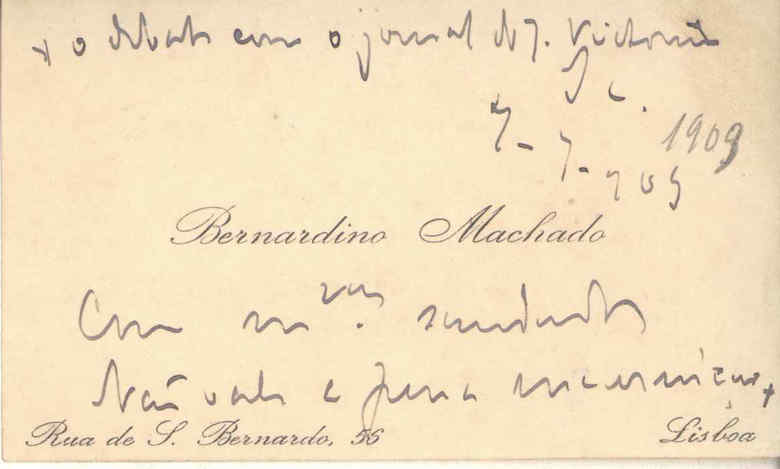 + o debate com o jornal de J. Victorino
Sc.
7-7-909
1909
Bernardino Machado
Com m.tas saudades
Não vale a pena encarniçar +
Rua de S. Bernardo, 56
Lisboa